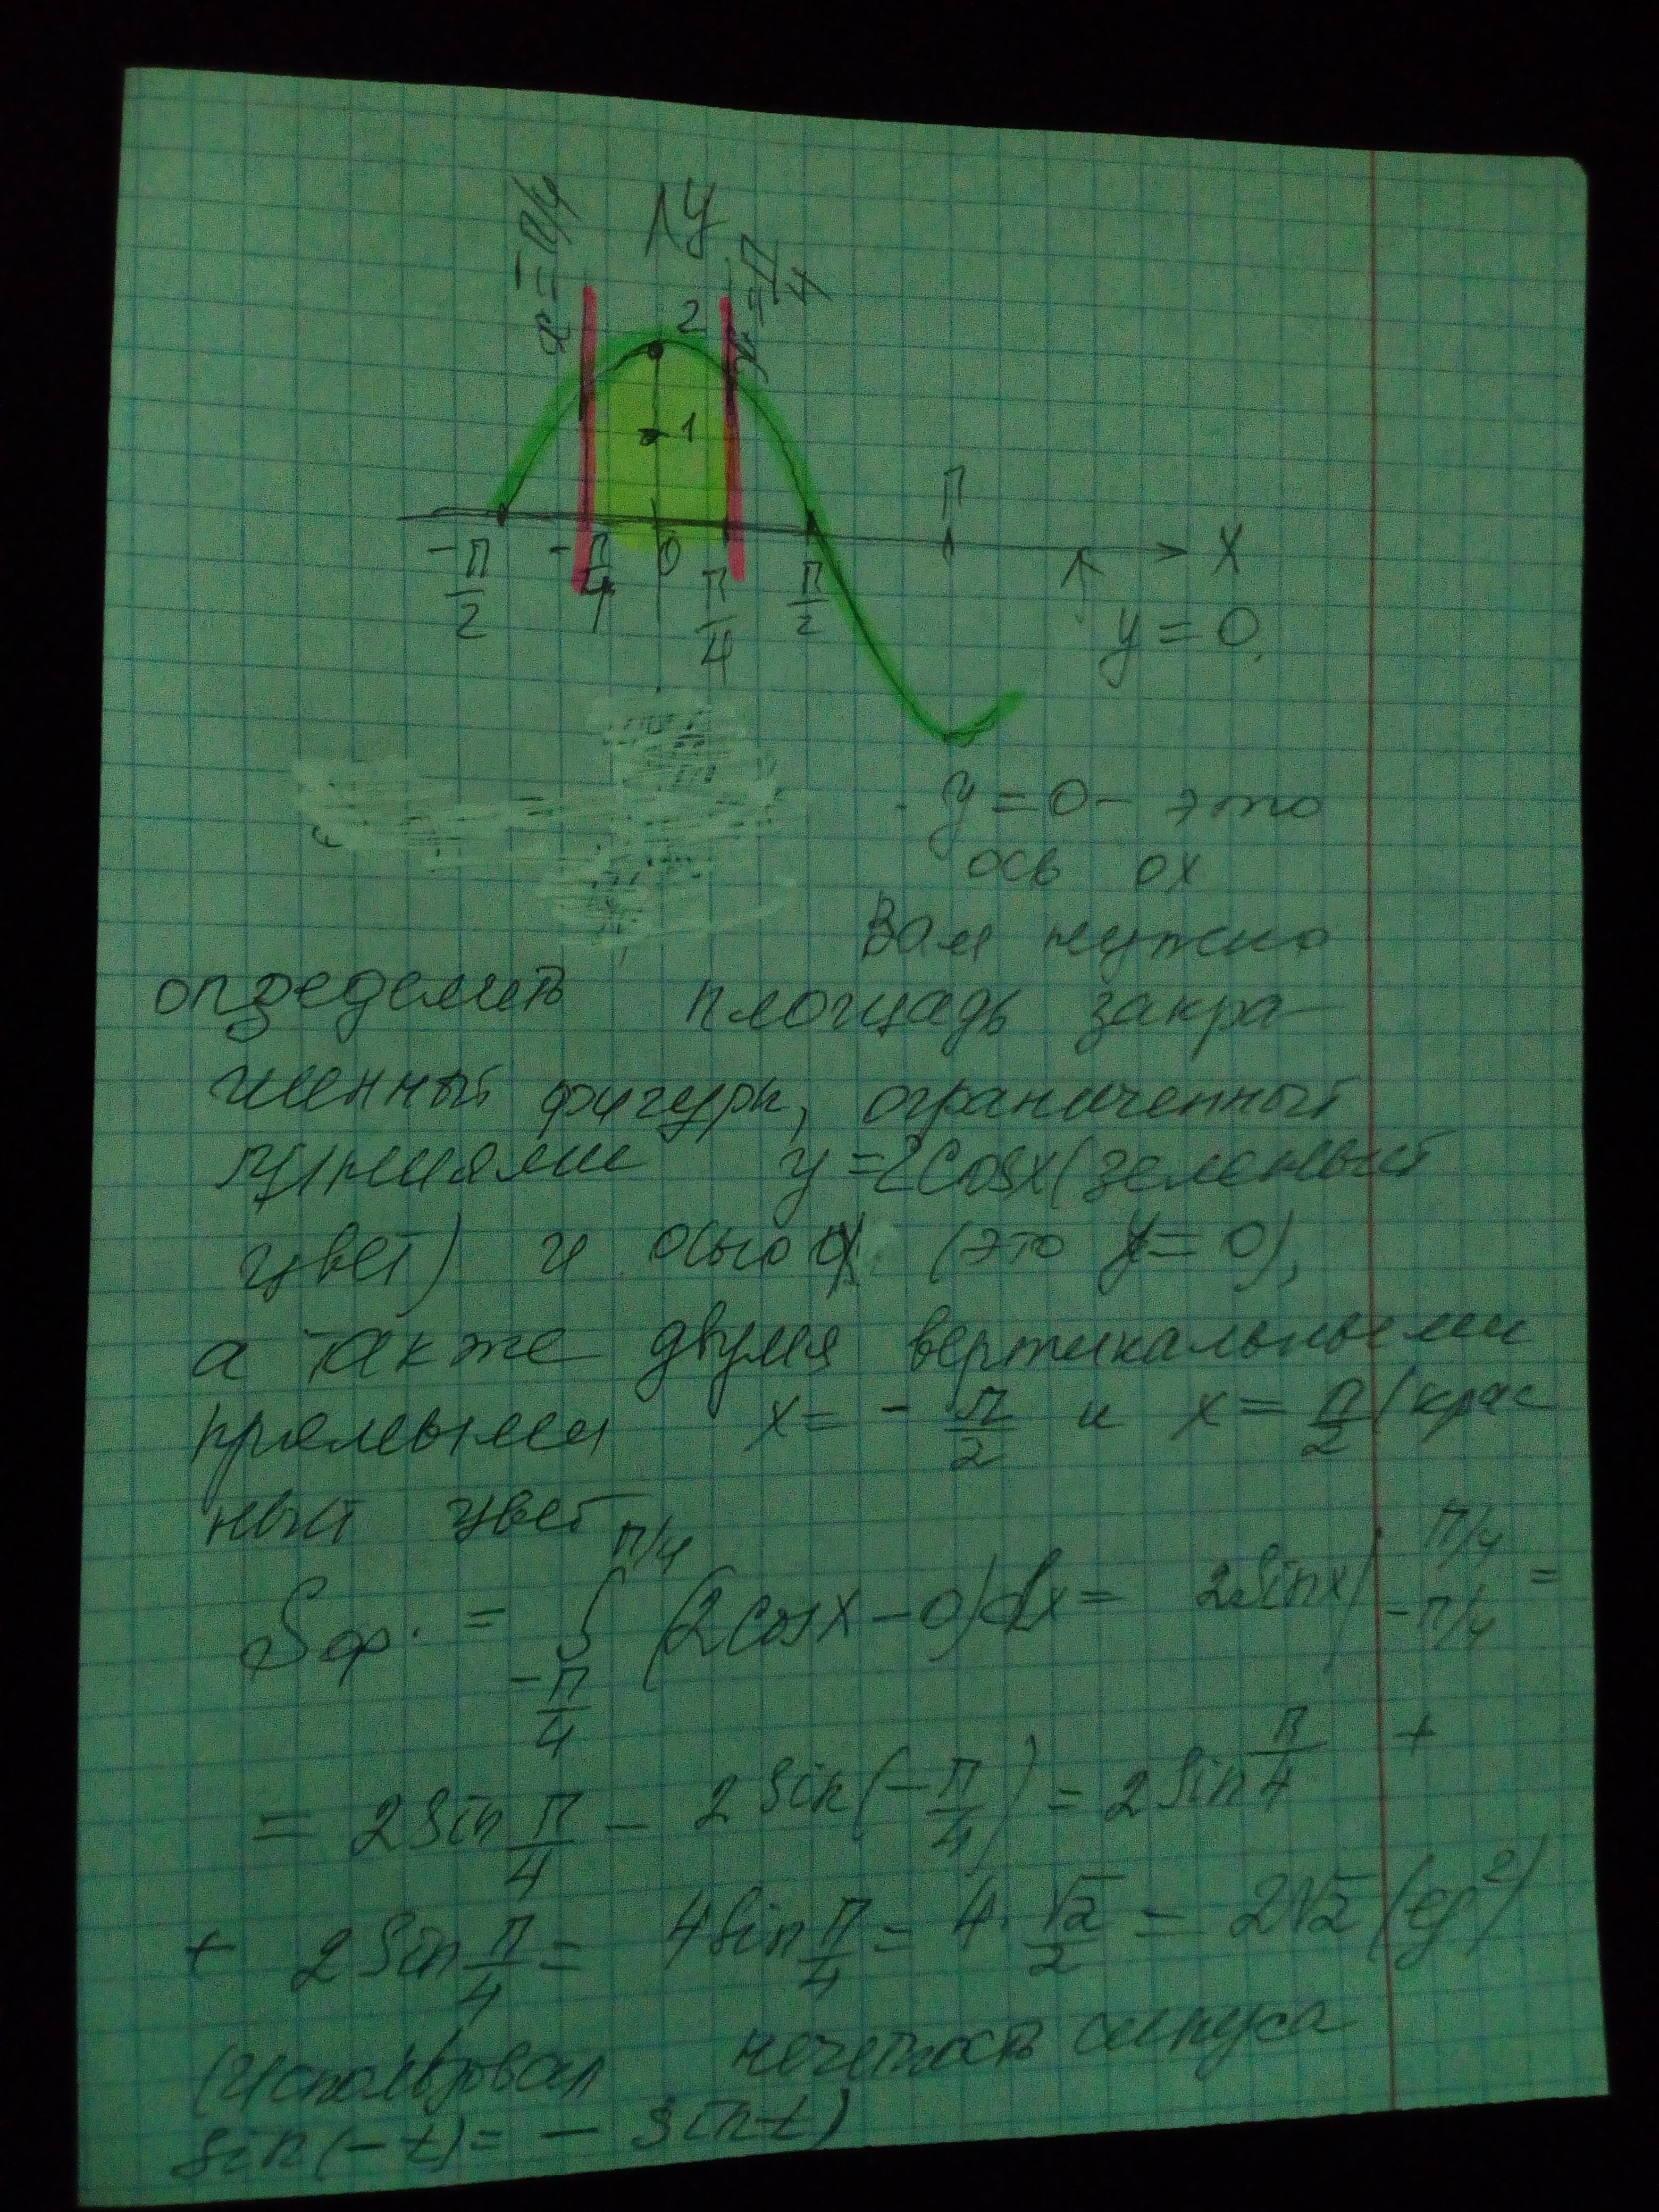 x=-π/4
y
x=π/4
2
1
π
-π/2 -π/4 0 π/4 π/2 x
y=0
y=0- это
ось ox
Вам нужно
определить площадь закра-
шенный фигуры, ограниченный
линиями y=2cosx(зеленый
цвет) и осью ox (это y=0),
а также двумя вертикальными
прямыми x= - π/2 и x= π/2 (крас
ный цвет
Sф. = ∫_{-π/4}^{π/4} (2cosx-0)dx= 2sinx|_{-π/4}^{π/4} =
= 2sin π/4 - 2sin(-π/4) = 2sin π/4 +
+ 2sin π/4 = 4sin π/4 = 4·√2/2 = 2√2 (ед²)
(использовал нечетность синуса
sin(-t)= - sint)